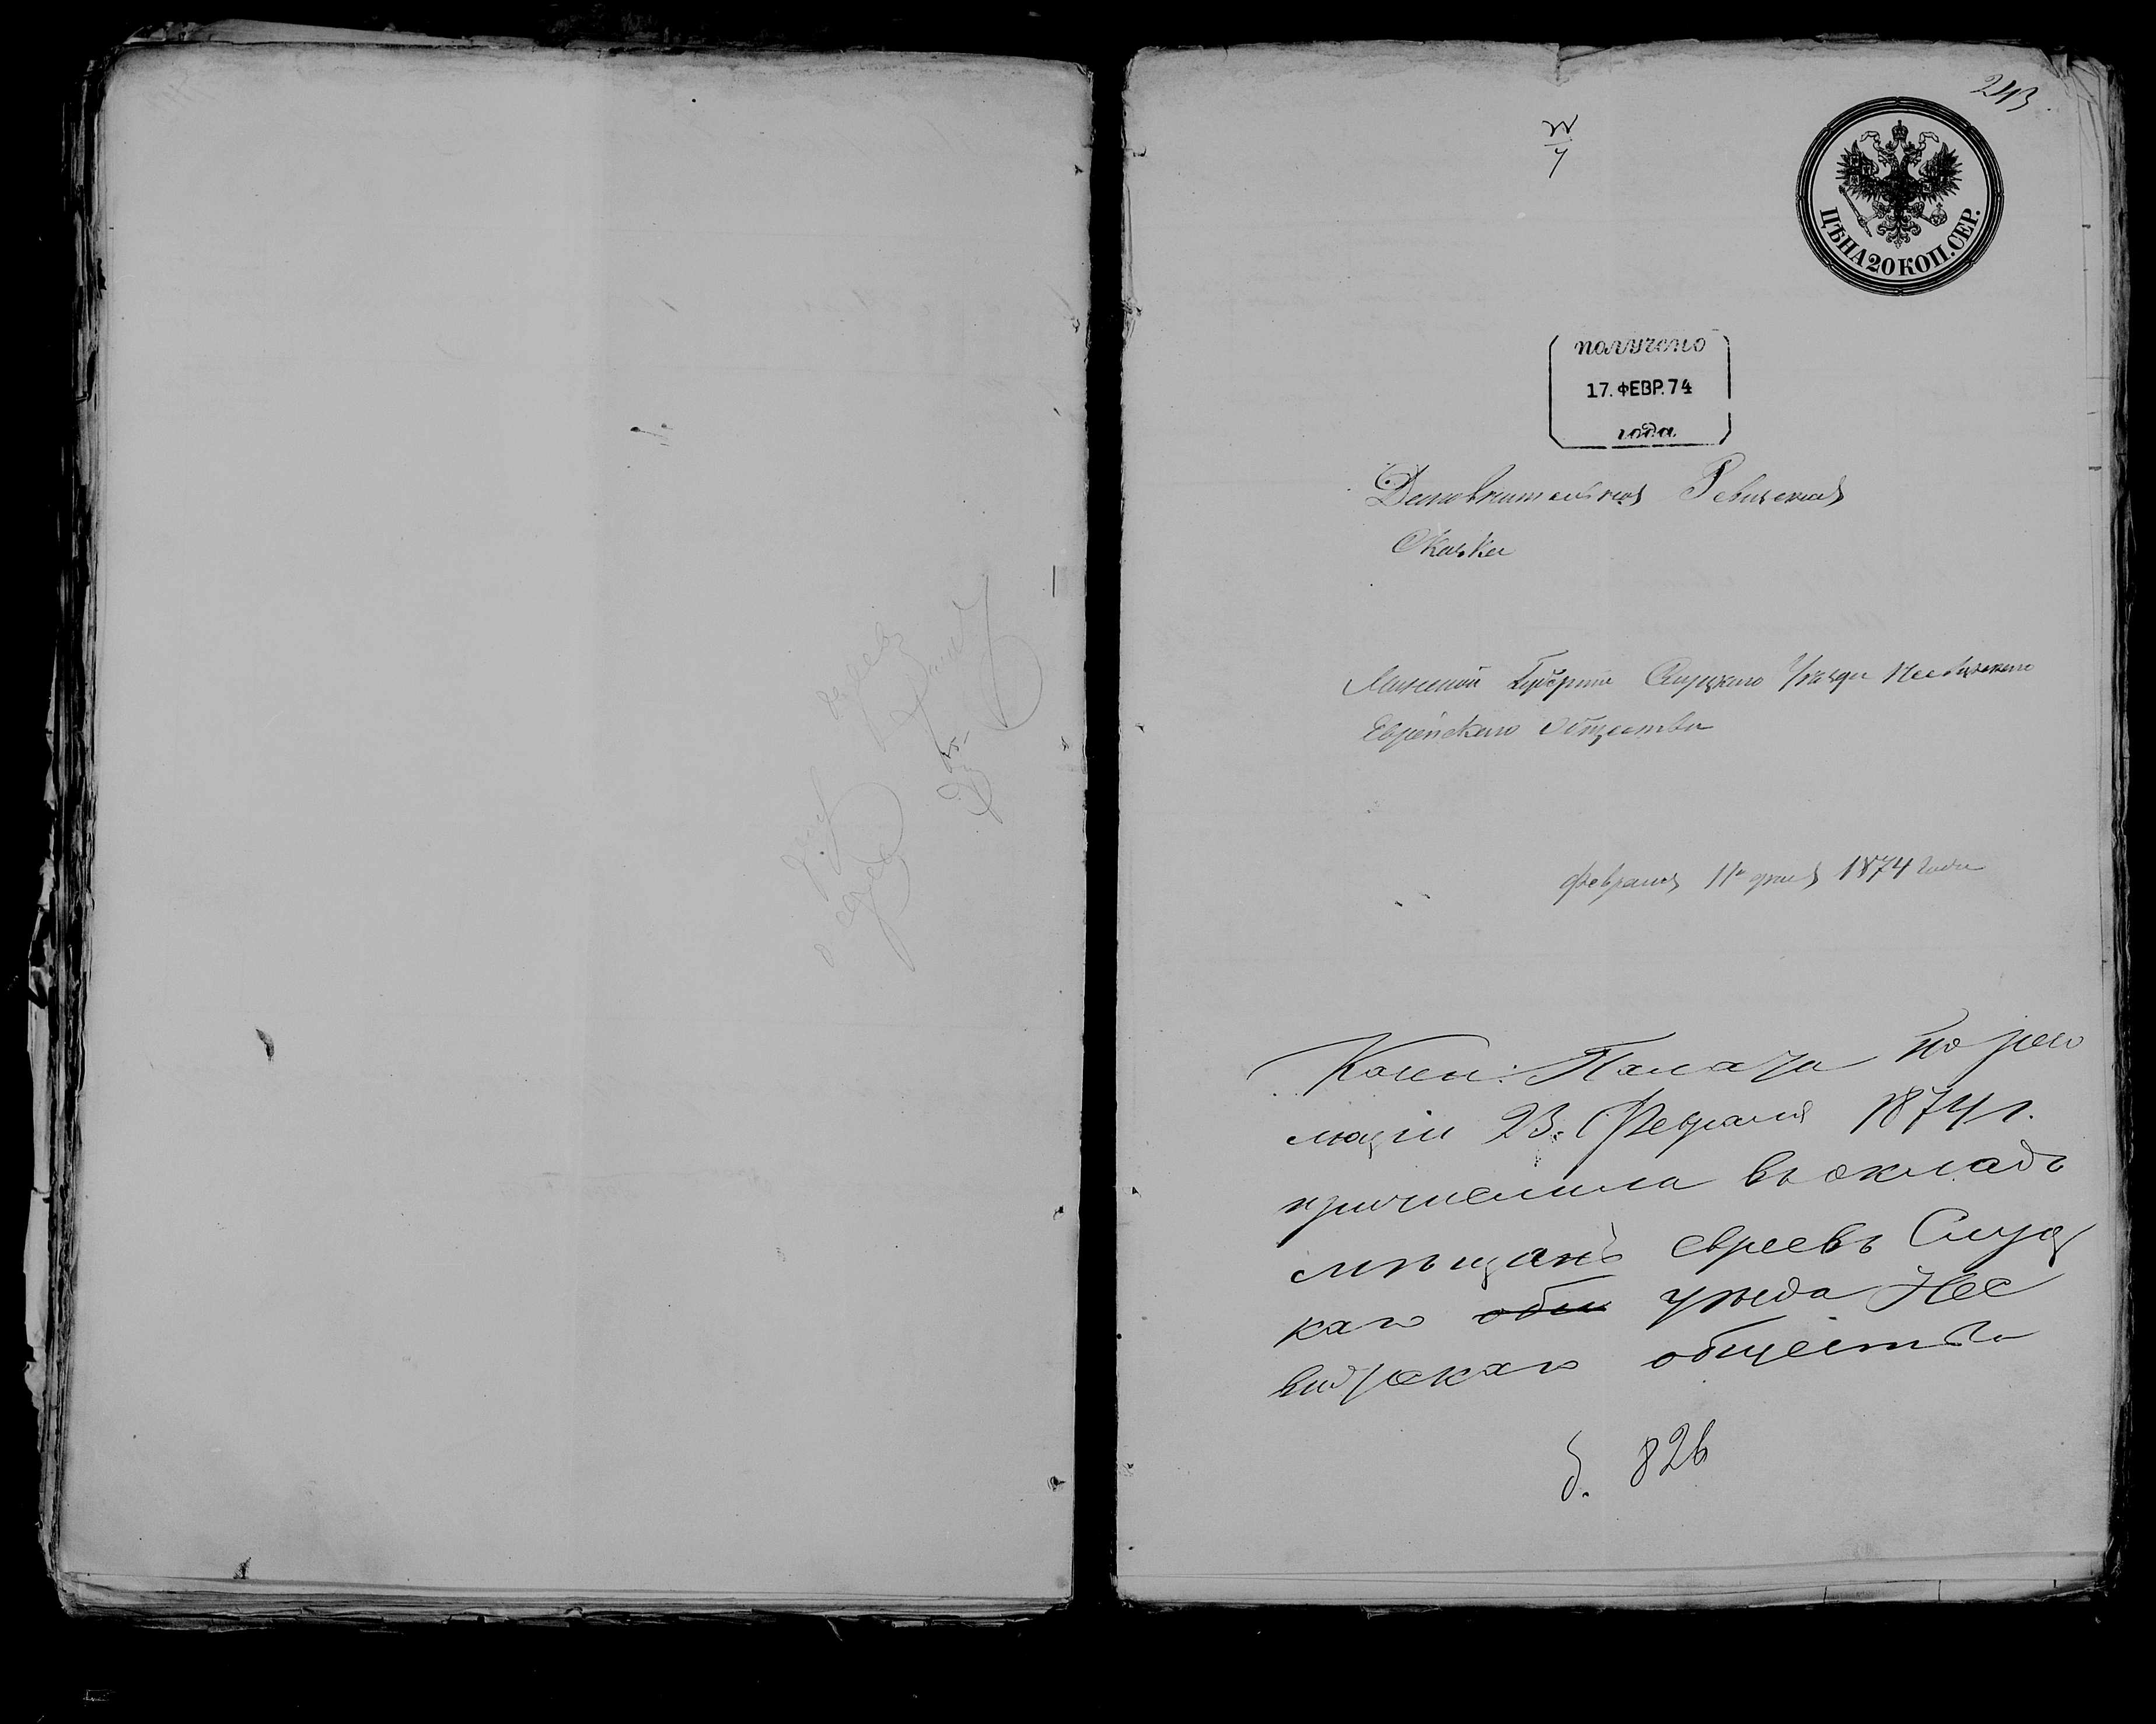 243.
ЦѢНА 20 КОП. СЕР.
получено
17. ФЕВР. 74
года
Дополнительная Ревизская
Сказка
Минской Губерніи Слуцкаго Уѣзда Несвижскаго
Еврейскаго Общества
Февраля 11го дня 1874 года
Казен: Палата по резо
люціи 23. Февраля 1874 г.
причислила въ окладъ
мѣщанъ евреевъ Слуц
каго общ уѣзда Нес
вижскаго общества